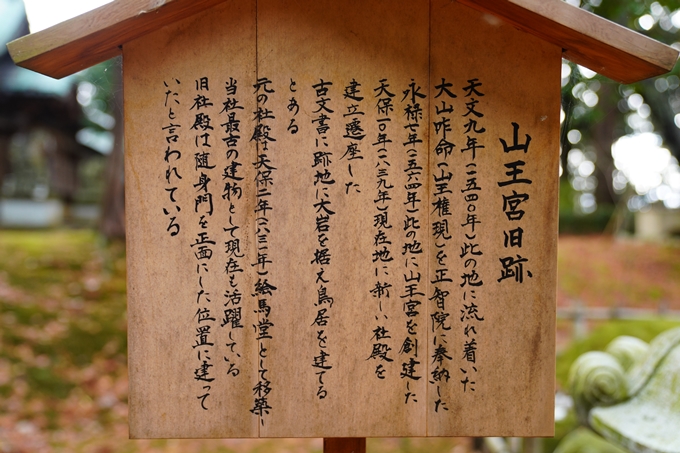 山王宮旧跡
天文九年(一五四〇年)此の地に流れ着いた
大山咋命(山王権現)を正智院に奉納した
永禄七年(一五六四年)此の地に山王宮を創建した
天保一〇年(一八三九年)現在地に新しい社殿を
建立遷座した
古文書に跡地に大岩を据え鳥居を建てる
とある
元の社殿は天保二年(一八三一年)絵馬堂として移築し
当社最古の建物として現在も活躍している
旧社殿は随身門を正面にした位置に建って
いたと言われている